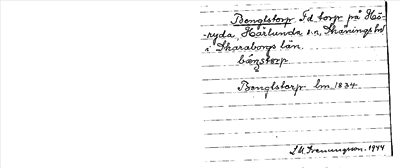 Bengtstorp. F.d. torp på Hö-
ryda, Härlunda sn, Skånings hd
i Skaraborgs län.
bäŋstorp
Bengtstorp lm 1834
J.M. Svenungson. 1944